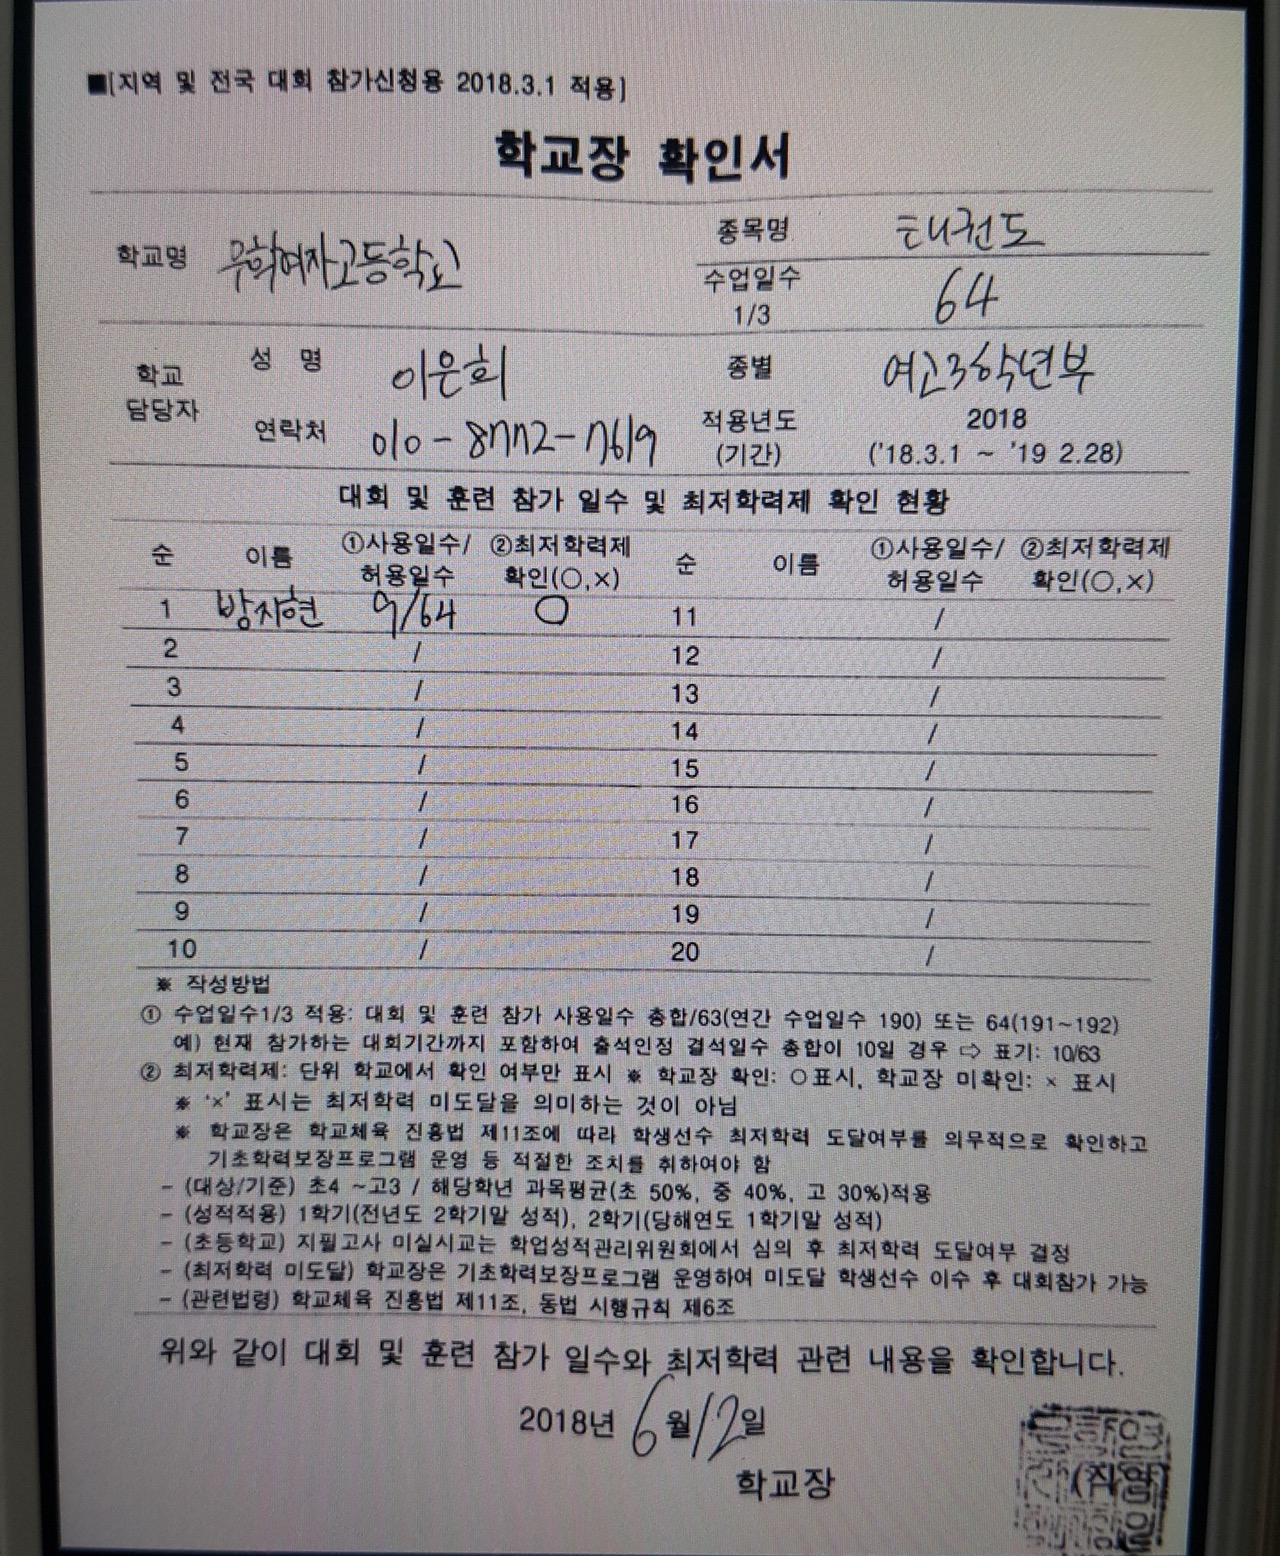 ■[지역 및 전국 대회 참가신청용 2018.3.1 적용]
학교장 확인서
학교명 무학여자고등학교 종목명 태권도
수업일수 1/3 64
학교 담당자 성 명 이은희 종별 여고3학년부
연락처 010-8772-7619 적용년도 (기간) 2018 ('18.3.1 ~ '19 2.28)
대회 및 훈련 참가 일수 및 최저학력제 확인 현황
순 이름 ①사용일수/허용일수 ②최저학력제 확인(○,×) 순 이름 ①사용일수/허용일수 ②최저학력제 확인(○,×)
1 방지현 9/64 ○ 11 /
2 / 12 /
3 / 13 /
4 / 14 /
5 / 15 /
6 / 16 /
7 / 17 /
8 / 18 /
9 / 19 /
10 / 20 /
※ 작성방법
① 수업일수1/3 적용: 대회 및 훈련 참가 사용일수 총합/63(연간 수업일수 190) 또는 64(191~192)
예) 현재 참가하는 대회기간까지 포함하여 출석인정 결석일수 총합이 10일 경우 ⇨ 표기: 10/63
② 최저학력제: 단위 학교에서 확인 여부만 표시 ※ 학교장 확인: ○표시, 학교장 미확인: × 표시
※ '×' 표시는 최저학력 미도달을 의미하는 것이 아님
※ 학교장은 학교체육 진흥법 제11조에 따라 학생선수 최저학력 도달여부를 의무적으로 확인하고
기초학력보장프로그램 운영 등 적절한 조치를 취하여야 함
- (대상/기준) 초4 ~고3 / 해당학년 과목평균(초 50%, 중 40%, 고 30%)적용
- (성적적용) 1학기(전년도 2학기말 성적), 2학기(당해연도 1학기말 성적)
- (초등학교) 지필고사 미실시교는 학업성적관리위원회에서 심의 후 최저학력 도달여부 결정
- (최저학력 미도달) 학교장은 기초학력보장프로그램 운영하여 미도달 학생선수 이수 후 대회참가 가능
- (관련법령) 학교체육 진흥법 제11조, 동법 시행규칙 제6조
위와 같이 대회 및 훈련 참가 일수와 최저학력 관련 내용을 확인합니다.
2018년 6월 12일
학교장 (직인)